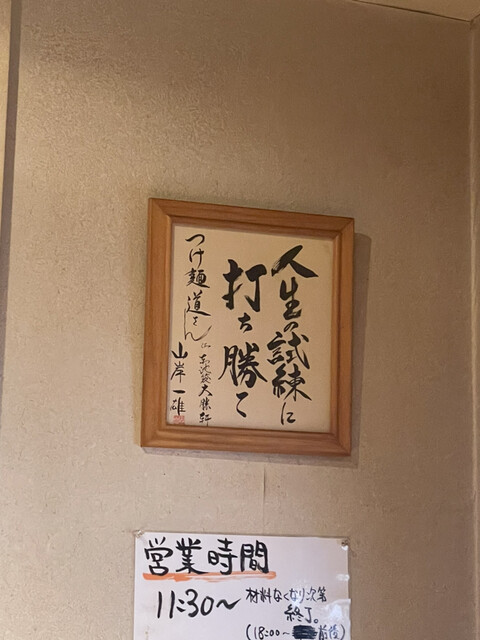 人生の試練に
打ち勝て
つけ麺 道さん江
東池袋大勝軒
山岸一雄
営業時間
11:30～
材料なくなり次第
終了。
(18:00～
前後)